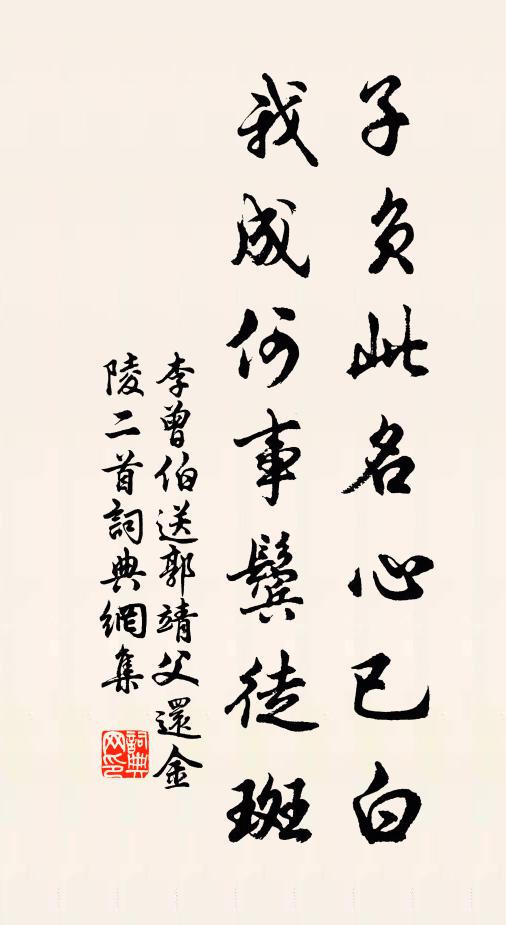 子負此名心已白
我成何事鬢徒斑
李曾伯送郭靖父還金
陵二首詞典網集
詞典
网印